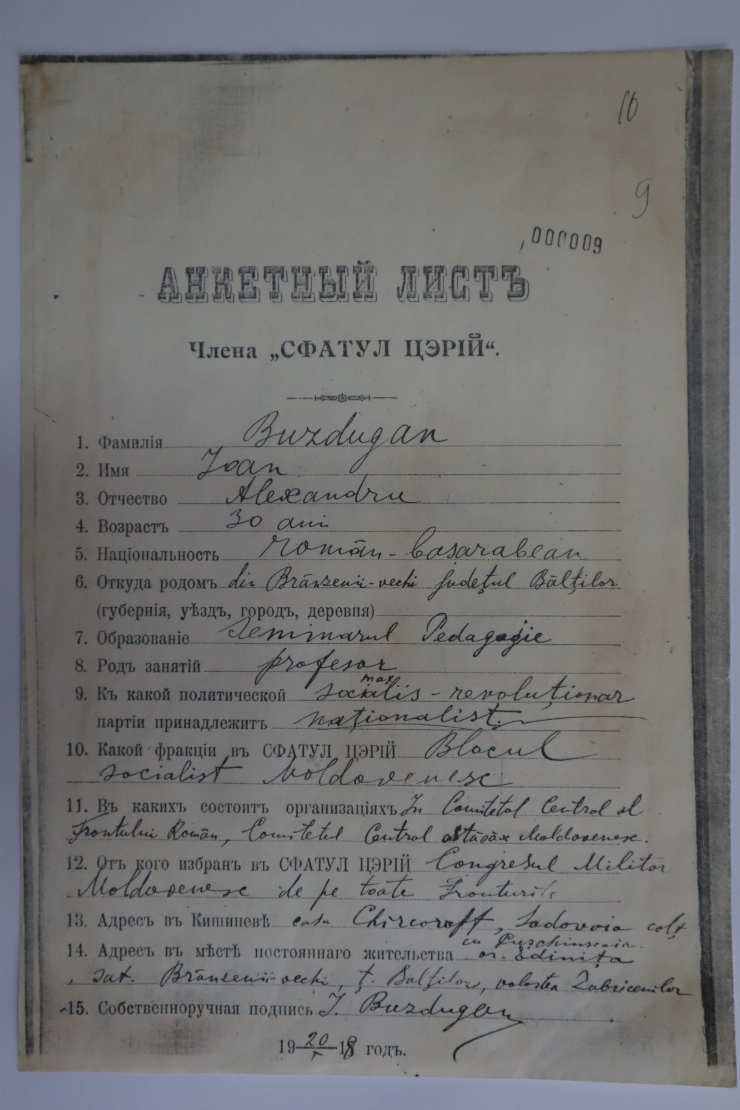 10
9
000009
АНКЕТНЫЙ ЛИСТЪ
Члена „СФАТУЛ ЦЭРІЙ“.
1. Фамилія Buzdugan
2. Имя Ioan
3. Отчество Alexandru
4. Возрастъ 30 ani
5. Національность român-basarabean
6. Откуда родомъ din Brânzenii-vechi județul Bălților
(губернія, уѣздъ, городъ, деревня)
7. Образованіе Seminarul Pedagogic
8. Родъ занятій profesor
max
9. Къ какой политической socialis-revoluționar
партіи принадлежитъ naționalist.
10. Какой фракціи въ СФАТУЛ ЦЭРІЙ Blocul
socialist Moldovenesc
11. Въ какихъ состоитъ организаціяхъ In Comitetul Central al
Frontului Român, Comitetul Central ostășăsc Moldovenesc.
12. Отъ кого избранъ въ СФАТУЛ ЦЭРІЙ Congresul Militar
Moldovenesc de pe toate fronturile
13. Адресъ въ Кишиневѣ casa Chircoroff, Sadovaia colț
cu Puschinscaia.
14. Адресъ въ мѣстѣ постояннаго жительства or. Edinița
sat. Brânzenii-vechi, ț. Balților, volostea Zabricenilor
15. Собственноручная подпись I. Buzdugan
19 20/I 18 годъ.